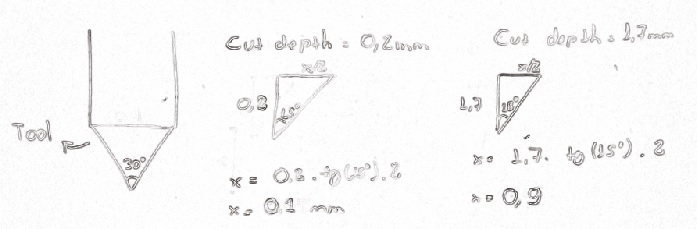 Tool
30°
Cut depth = 0,2mm
x/2
0,2
15°
x = 0.2 . tg(15°) . 2
x = 0,1 mm
Cut depth = 1,7mm
x/2
1,7
15°
x = 1,7 . tg (15°) . 2
x = 0,9